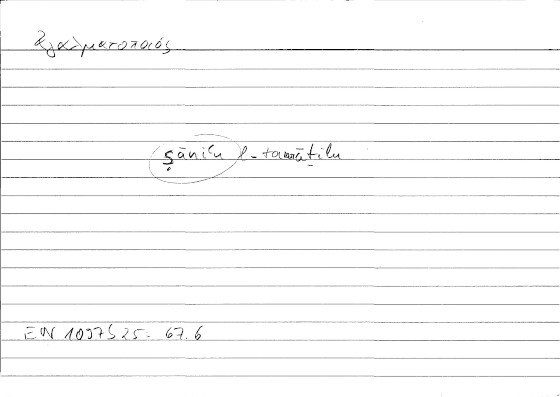 ἀγαλματοποιός
ṣāniʿu l-tamāṯīlu
EN 1097b25 - 67.6